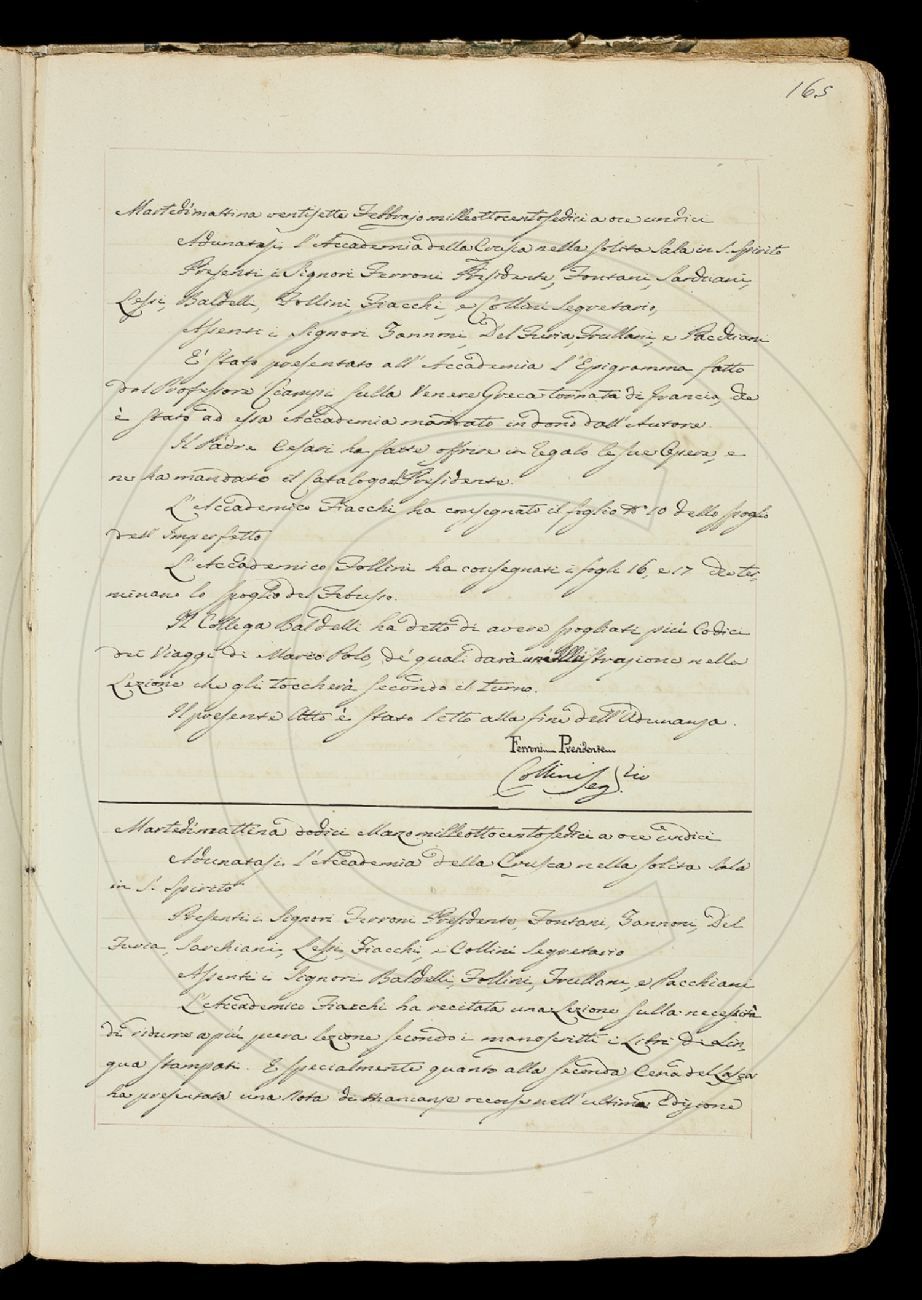 165
Martedì mattina ventisette Febbrajo milleottocentosedici a ore undici
Adunatasi l'Accademia della Crusca nella solita Sala in S. Spirito
Presenti i Signori Ferroni Presidente, Fontani, Sarchiani,
Lessi, Baldelli, Follini, Fiacchi, e Collini Segretario,
Assenti i Signori Zannoni, Del Furia, Frullani, e Pacchiani
E' stato presentato all'Accademia l'Epigramma fatto
dal Professore Ciampi sulla Venere Greca tornata di Francia, che
è stato ad essa Accademia mandato in dono dall'Autore.
Il Padre Cesari ha fatte offrire in regalo le sue Opere, e
ne ha mandato il Catalogo al Presidente.
L'Accademico Fiacchi ha consegnato il foglio N.° 10 dello spoglio
dell'Imperfetto
L'Accademico Follini ha consegnati i fogli 16, e 17 che ter-
minano lo spoglio del Febusso.
Il Collega Baldelli ha detto di avere spogliati più Codici
dei Viaggi di Marco Polo, de' quali darà illustrazione nella
Lezione che gli toccherà secondo il turno.
Il presente Atto è stato letto alla fine dell'Adunanza.
Ferroni Presidente
Collini Seg.rio
Martedì mattina dodici Marzo milleottocentosedici a ore undici
Adunatasi l'Accademia della Crusca nella solita Sala
in S. Spirito
Presenti i Signori Ferroni Presidente, Fontani, Zannoni, Del
Furia, Sarchiani, Lessi, Fiacchi, e Collini Segretario
Assenti i Signori Baldelli, Follini, Frullani, e Pacchiani
L'Accademico Fiacchi ha recitata una Lezione sulla necessità
di ridurre a più pura lezione secondo i manoscritti i Libri di Lin-
gua stampati. E specialmente quanto alla seconda Cena del Lasca
ha presentata una Nota di mancanze occorse nell'ultima Edizione